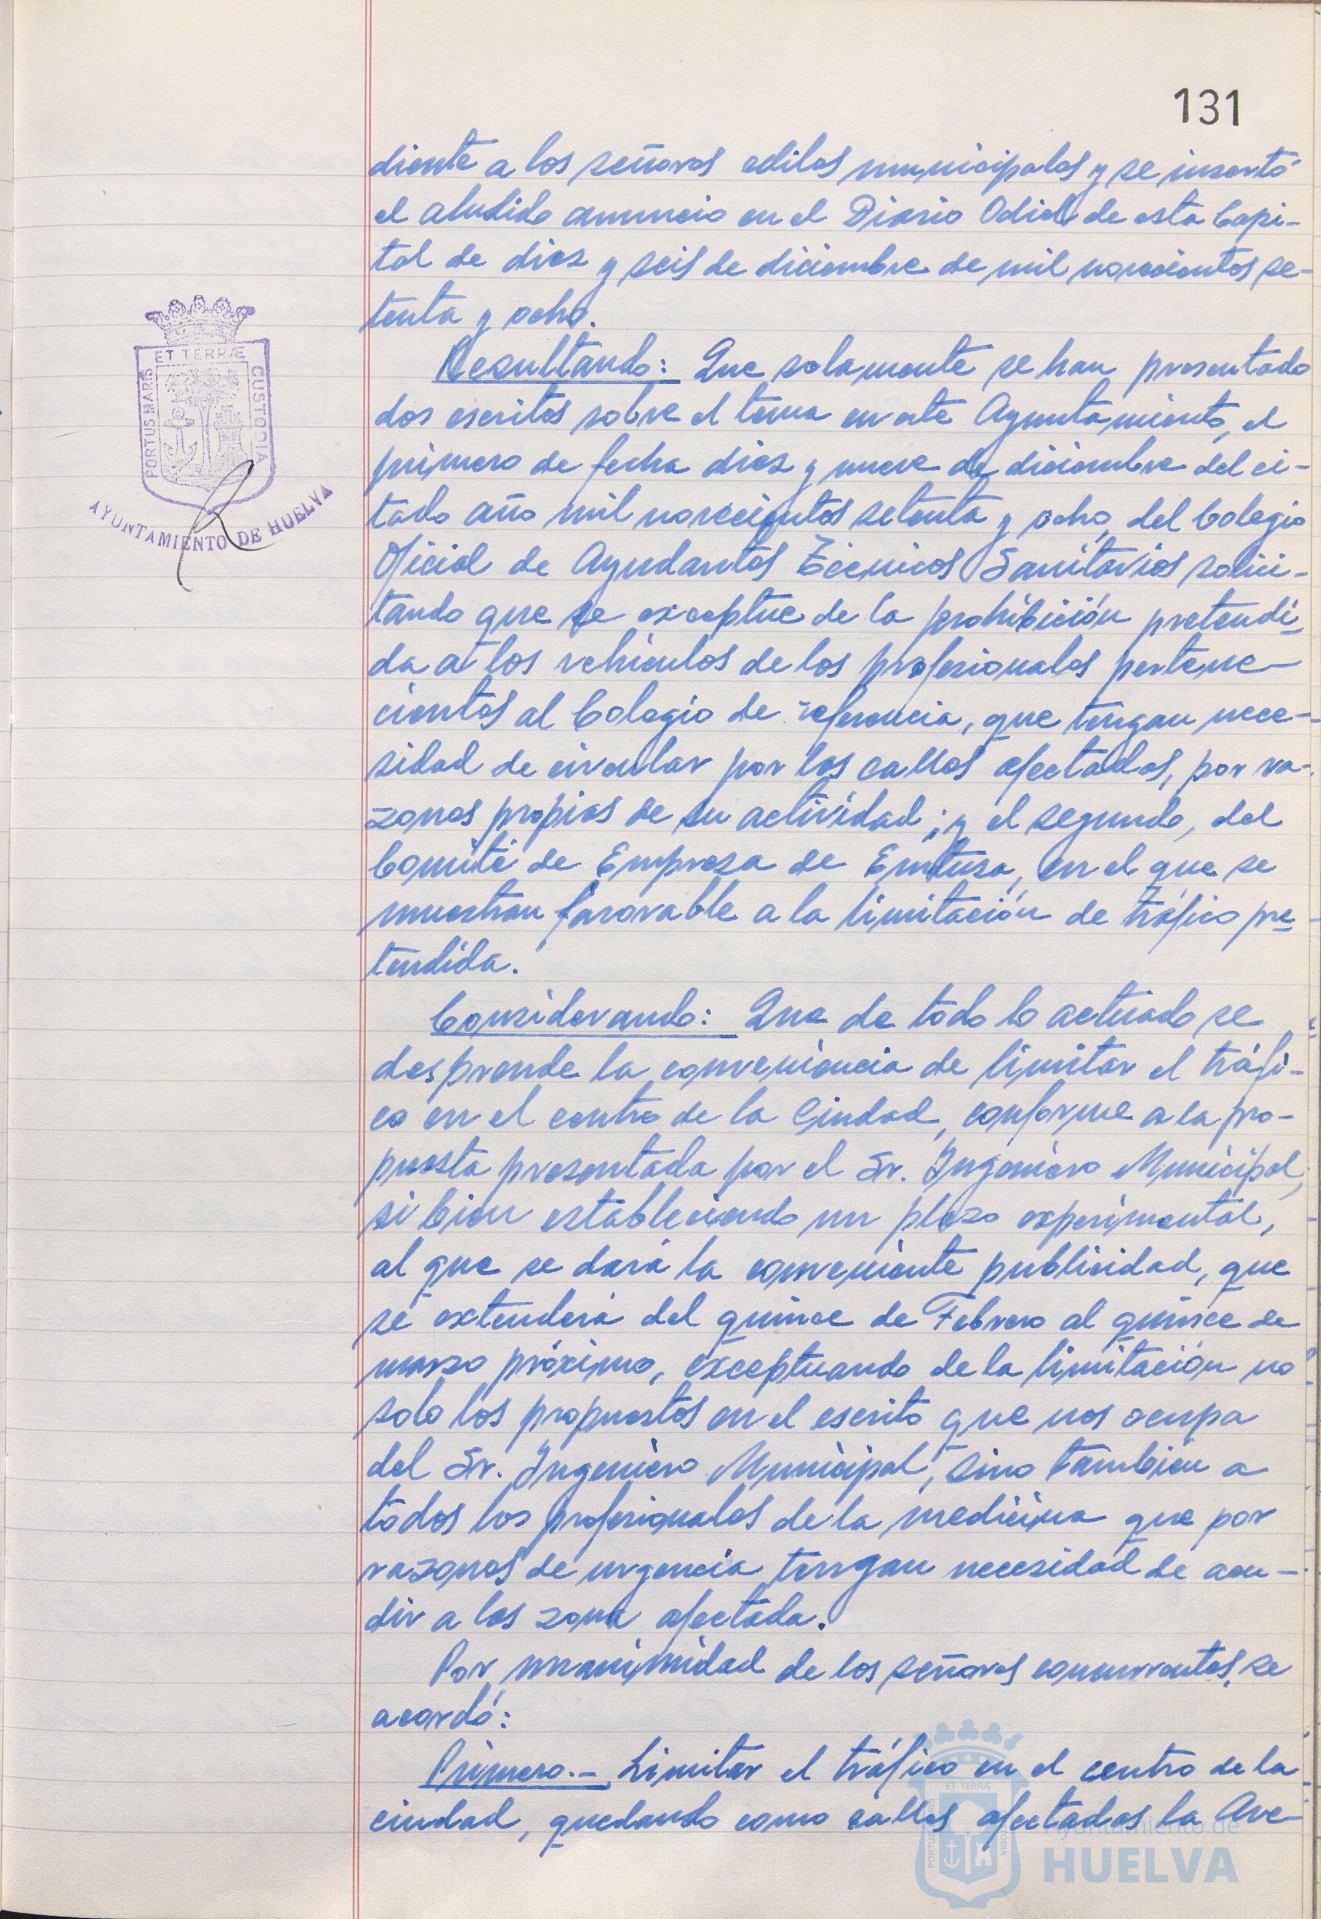 131
diente a los señores ediles municipales y se insertó
el aludido anuncio en el Diario Odiel de esta Capi-
tal de diez y seis de diciembre de mil novecientos se-
tenta y ocho.
Resultando: Que solamente se han presentado
dos escritos sobre el tema en este Ayuntamiento, el
primero de fecha diez y nueve de diciembre del ci-
tado año mil novecientos setenta y ocho, del Colegio
Oficial de Ayudantes Técnicos Sanitarios solici-
tando que se exceptue de la prohibición pretendi-
da a los vehículos de los profesionales pertene-
cientes al Colegio de referencia, que tengan nece-
sidad de circular por las calles afectadas, por ra-
zones propias de su actividad; y el segundo, del
Comité de Empresa de Emtusa, en el que se
muestran favorable a la limitación de tráfico pre-
tendida.
Considerando: Que de todo lo actuado se
desprende la conveniencia de limitar el tráfi-
co en el centro de la Ciudad, conforme a la pro-
puesta presentada por el Sr. Ingeniero Municipal,
si bien estableciendo un plazo experimental,
al que se dará la conveniente publicidad, que
se extenderá del quince de Febrero al quince de
marzo próximo, exceptuando de la limitación no
solo los propuestos en el escrito que nos ocupa
del Sr. Ingeniero Municipal, sino también a
todos los profesionales de la medicina que por
razones de urgencia tengan necesidad de acu-
dir a las zona afectada.
Por unanimidad de los señores concurrentes, se
acordó:
Primero.- Limitar el tráfico en el centro de la
ciudad, quedando como calles afectadas la Ave-
PORTUS MARIS
ET TERRÆ
CUSTODIA
AYUNTAMIENTO DE HUELVA
Ayuntamiento de
HUELVA